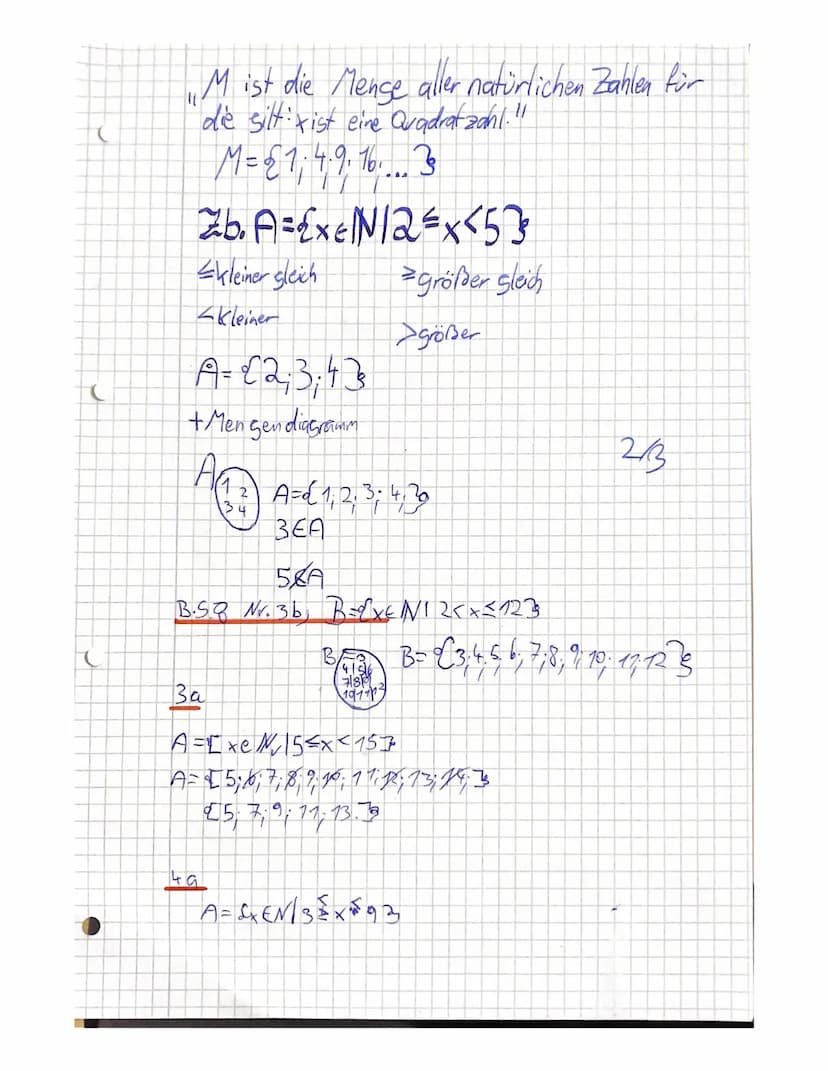 „M ist die Menge aller natürlichen Zahlen für
die gilt: x ist eine Quadratzahl."
M={1;4;9;16;...}
Zb. A={x∈ℕ|2≤x<5}
≤kleiner gleich ≥größer gleich
<kleiner
>größer
A={2;3;4}
+Mengendiagramm
2/3
A 1 2
3 4
A={1;2;3;4;}
3∈A
5∉A
B.S.8 Nr. 3b, B={x∈ℕ|2<x≤12}
B B={3;4;5;6;7;8;9;10;11;12}
3a
A={x∈ℕ|5≤x<15}
A={5;6;7;8;9;10;11;12;13;14;}
{5;7;9;11;13.}
4a
A={x∈ℕ|3≤x≤9}